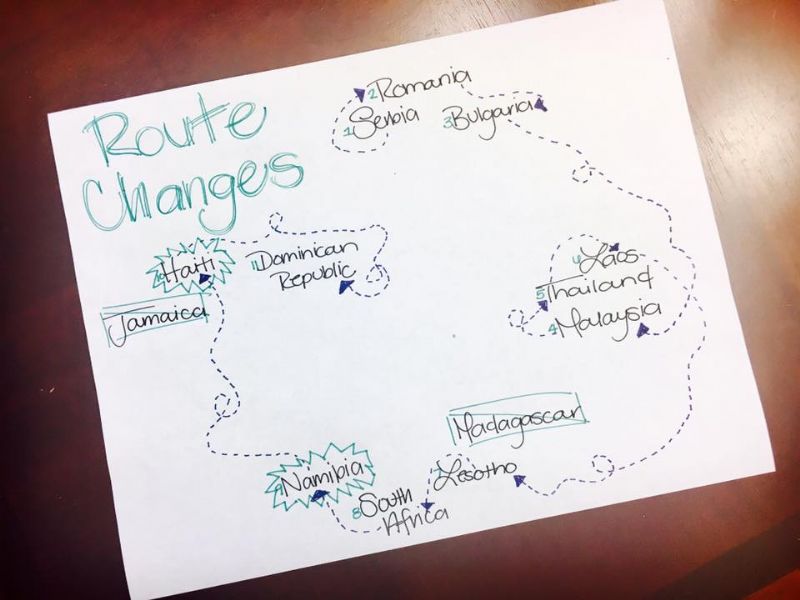 Route
Changes
2 Romania
1 Serbia
3 Bulgaria
10 Haiti
11 Dominican
Republic
Jamaica
6 Laos
5 Thailand
4 Malaysia
Madagascar
7 Lesotho
9 Namibia
8 South
Africa